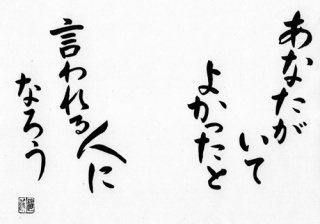 あなたが
いて
よかったと
言われる人に
なろう